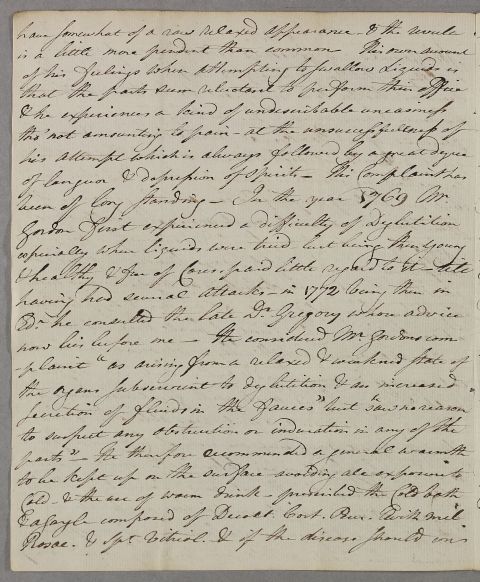 have somewhat of a raw relaxed appearance & the uvula
is a little more pendent than common. His own account
of his feelings when attempting to swallow Liquids is
that the parts seem reluctant to perform their office
& he experiences a kind of undescribable uneasiness
tho' not amounting to pain - at the unsuccessfulness of
his attempt which is always followed by a great degree
of languor & depression of Spirits - This Complaint has
been of long standing - In the year 1769 Mr
Gordon first experienced a difficulty of Deglutition
especially when liquids were tried but being then young
& healthy & free of Cares, paid little regard to it - till
having had several attacks - in 1772 being then in
Edr he consulted the late Dr Gregory whose advice
now lies before me - He considered Mr Gordons com
plaint "as arising from a relaxed & weakened state of
the organs subservient to deglutition & an increased
secretion of fluids in the Fauces" but "saw no reason
to suspect any obstruction or induration in any of the
parts" - He therefore recommended a general warmth
to be kept up on the surface avoiding all exposure to
Cold & the use of warm drink - prescribed the Cold bath
a Gargle composed of Decoct. Cort. Peru. with Mel
Rosac. & Spt Vitriol. & if the disease should in